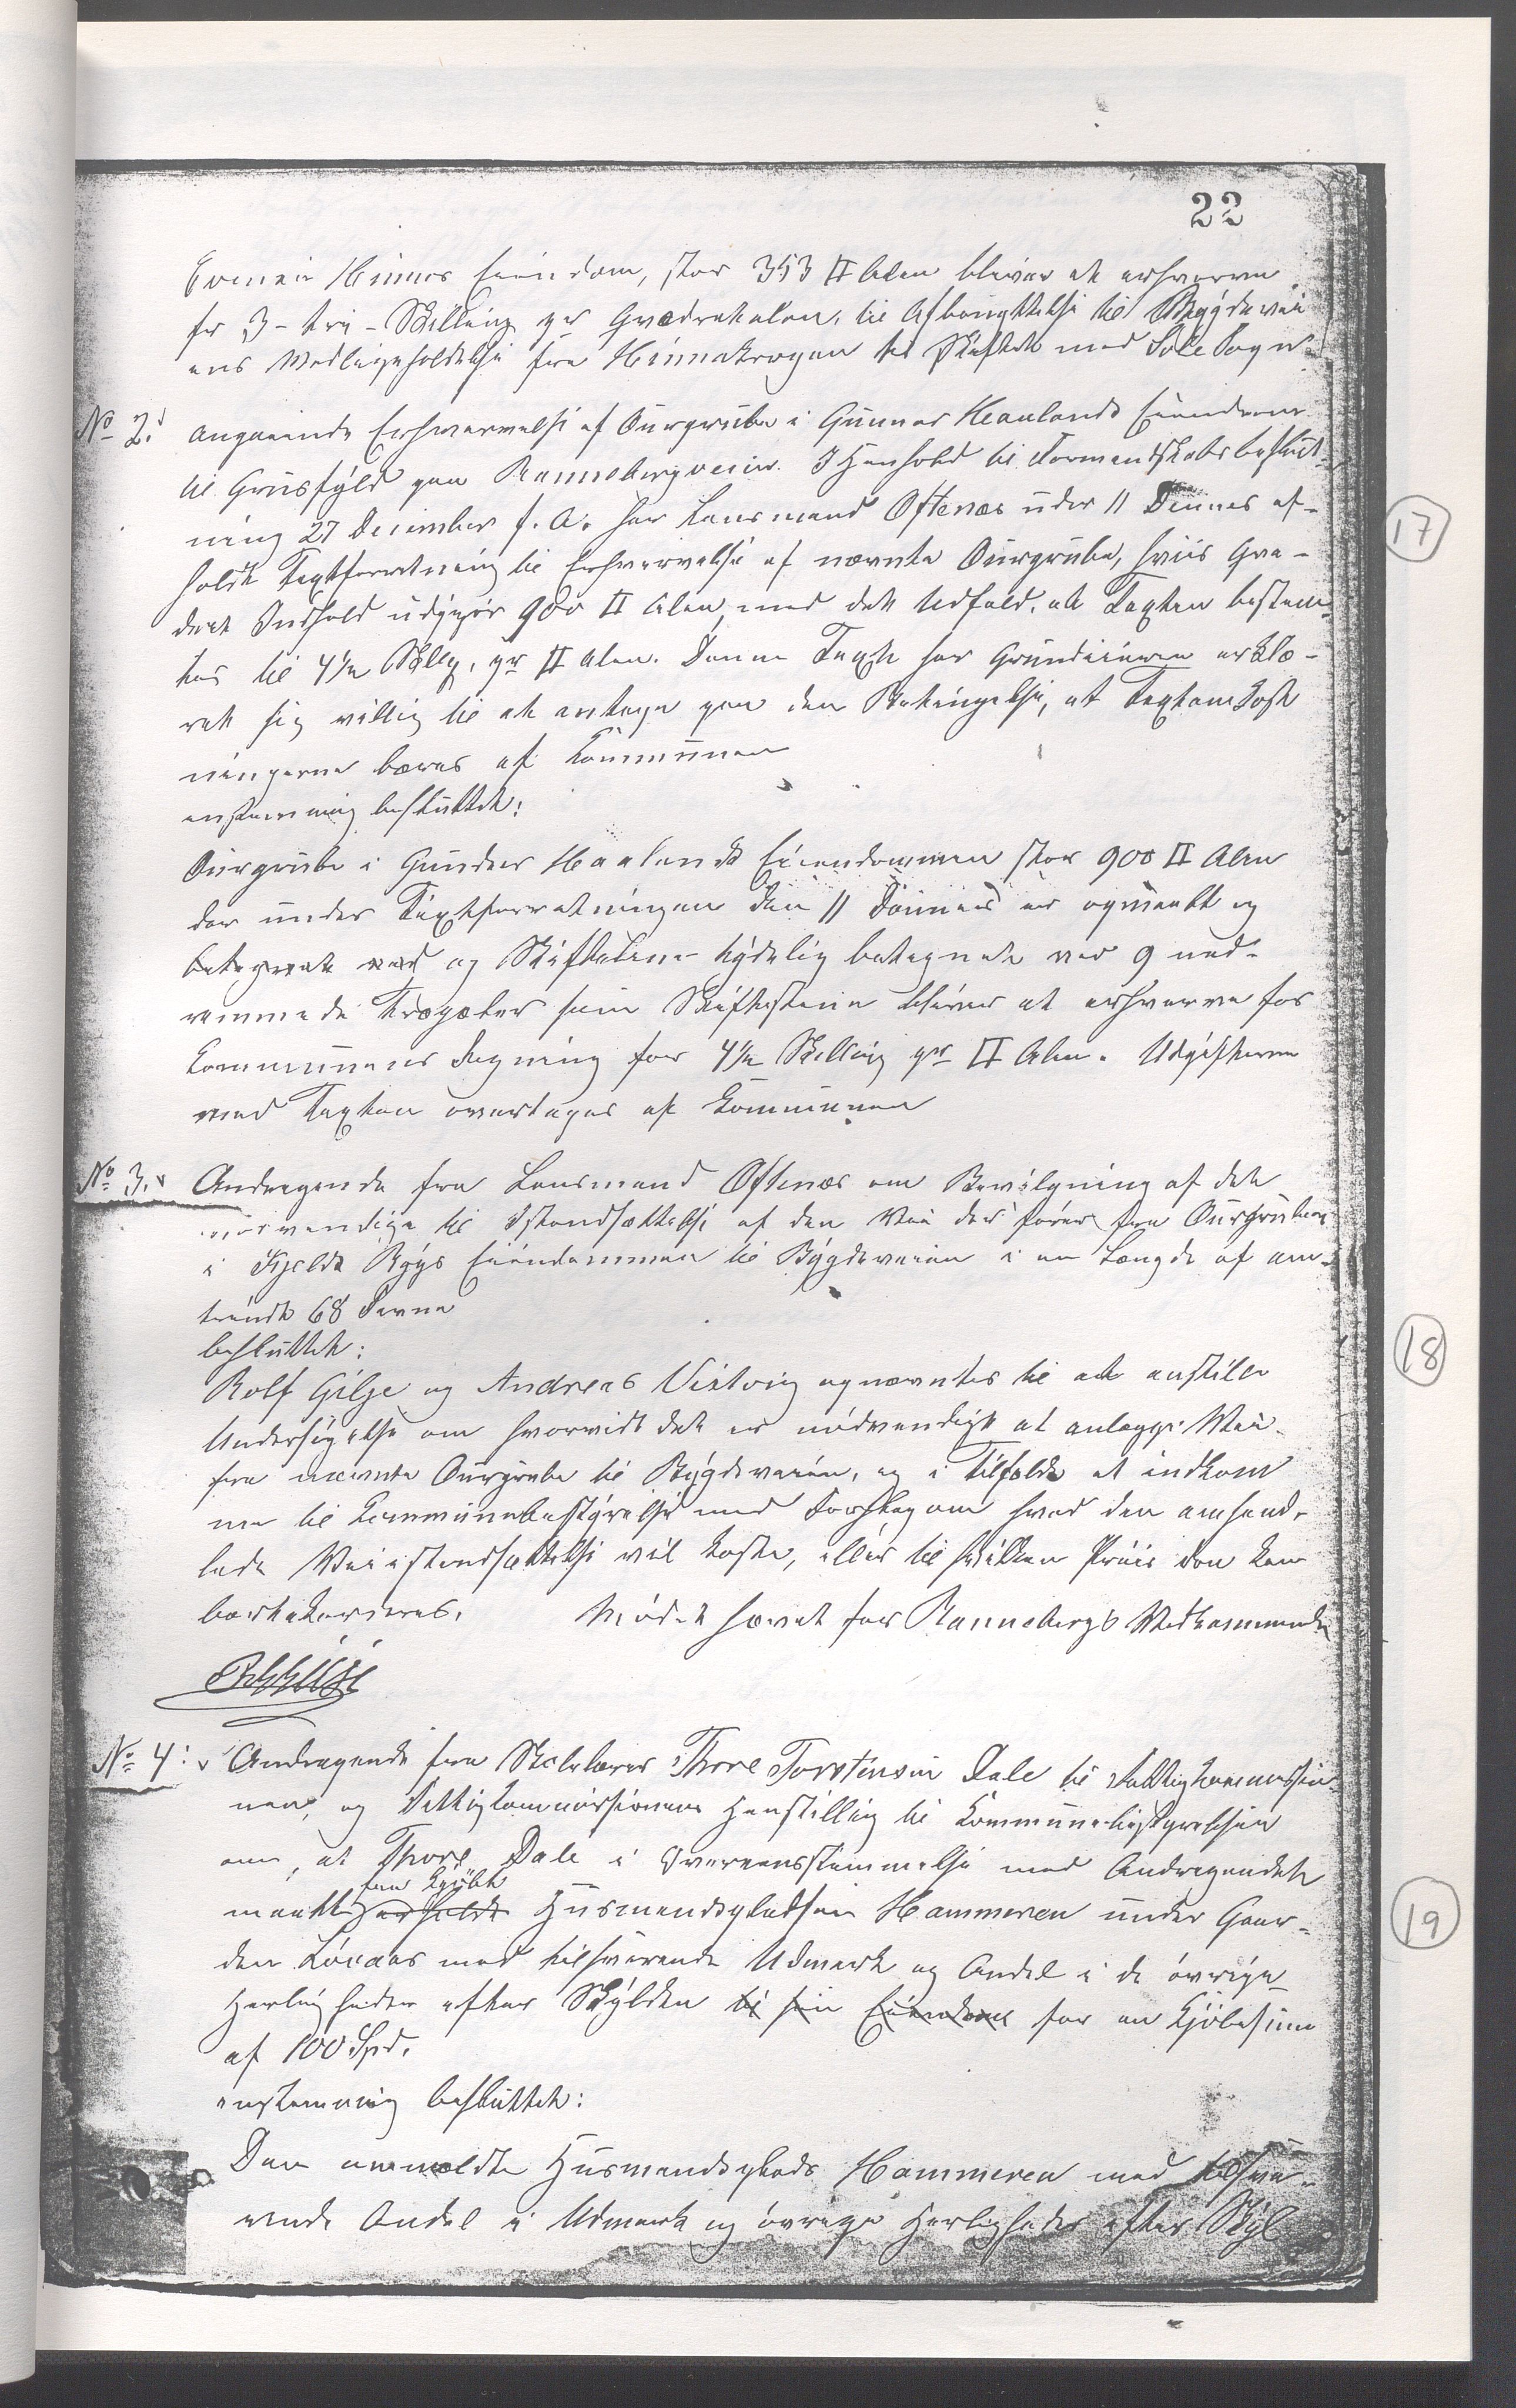 22
Hinnes Eiendom, stor 353 □ Alen bliver at erhverve
for 3 - tre - Skilling pr Qvadratalen, til Afbenyttelse til Bygdevei
ens Vedligeholdelse fra Hinnakrogen til Skiftet med Sole Sogn
No 2. angaaende Erhvervelse af Ourgrube i Gunnar Haalands Eiendom
til Gruusfyld paa Rannebergveien. I Henhold til Formandskabsbeslut-
ning 27 December f. A. har Lensmand Oftenæs under 11 Dennes af-
holdt Taxtforretning til Erhvervelse af nævnte Ourgrube, hvis Qva-
drat Indhold udgjør 900 □ Alen, med det Udfald, at Taxten bestem-
tes til 4½ Skllg. pr □ Alen. Denne Taxt har Grundeieren erklæ-
ret sig villig til at antage paa den Betingelse, at Taxtomkost
ningerne bæres af Kommunen
enstemmig besluttet:
Ourgrube i Gunder Haalands Eiendommen stor 900 □ Alen
der under Taxtforretningen den 11 Dennes er opmaalt og
betegnet ved og Skiftelinie tydelig betegnet ved 9 ned-
rammede Træpæler som Skiftestene bliver at erhverve for
Kommunens Regning for 4½ Skilling pr □ Alen. Udgifterne
ved Taxten overtages af Kommunen
No 3. Andragende fra Lensmand Oftenæs om Bevilgning af det
nødvendige til Istandsættelse af den Vei der fører fra Ourgruben
i Kjeld Røgs Eiendommen til Bygdeveien i en Længde af om-
trendt 68 Favne
besluttet:
Rolf Gilje og Andreas Vistvig opnævntes til at anstille
Undersøgelse om hvorvidt det er nødvendigt at anlægge Vei
fra nævnte Ourgrube til Bygdeveien, og i Tilfælde at indkom
me til Kommunebestyrelse med Forslag om hvad den omhand-
lede Veiistandsættelse vil koste, eller til hvilken Priis den kan
bortakorderes. Mødet hævet for Rannebergs Vedkommende
No 4. Andragende fra Skolelærer Thore Torstensen Dale til Fattigkommissio
nen, og Fattigkommissionens Henstilling til Kommunebestyrelsen
om, at Thore Dale i Overeensstemmelse med Andragendet
faa kjøbt
maatte erholde Husmandspladsen Hammeren under Gaar-
den med tilsvarende Udmark og Andel i de øvrige
Herligheder efter Skylden til sin Eiendom for en Kjøbesum
af 100 Spd.
enstemmig besluttet:
Den anmeldte Husmandsplads Hammeren med tilsva-
rende Andel i Udmark og øvrige Herligheder efter Skyl
17
18
19